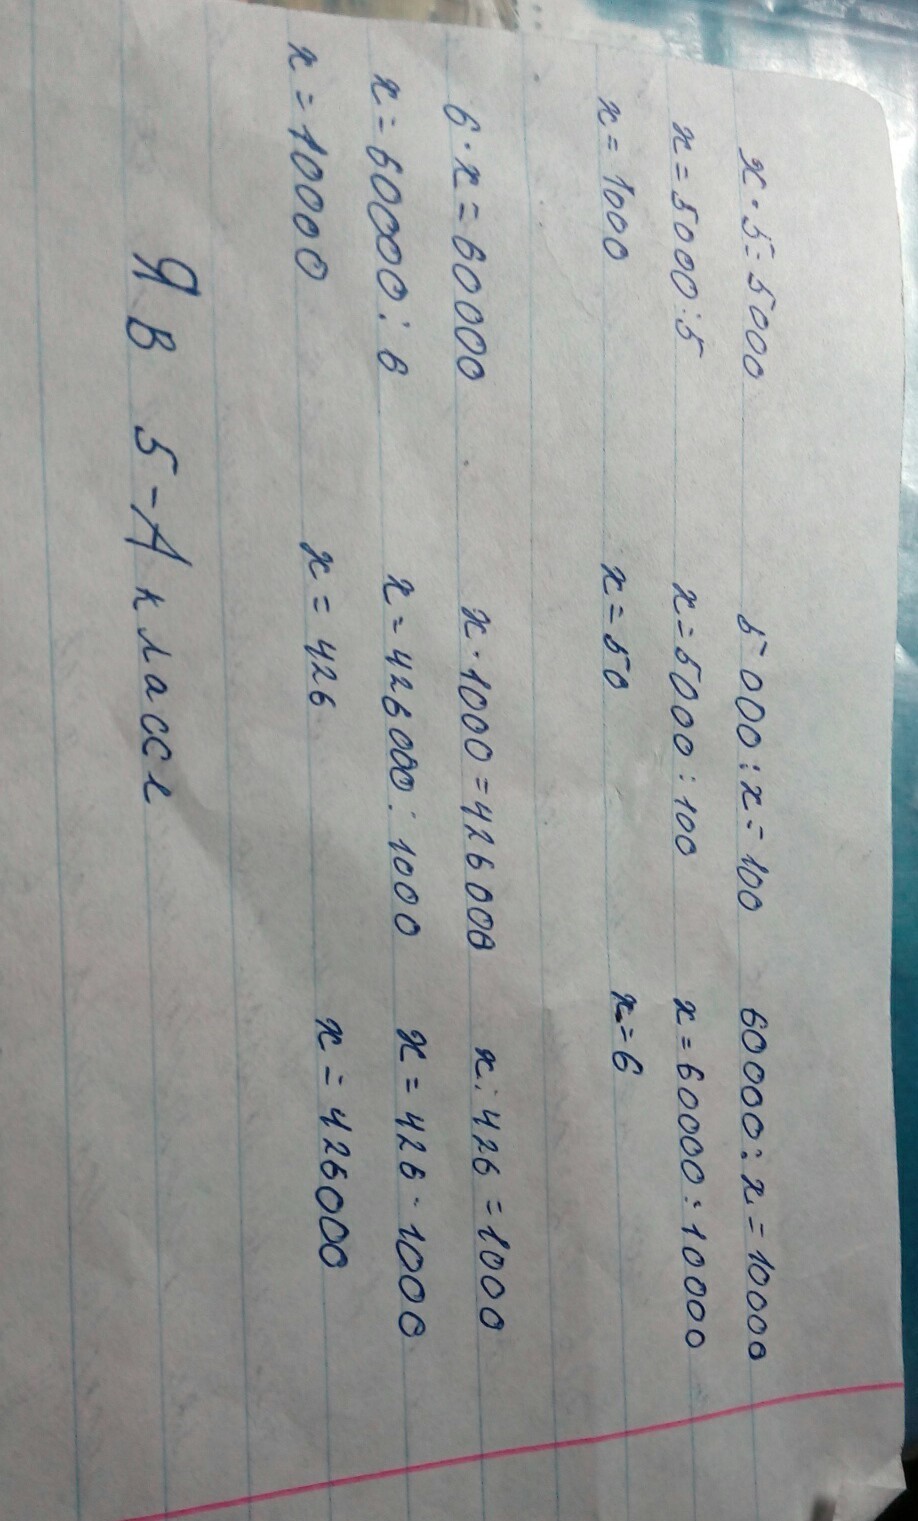 x · 5 = 5000 5000 : x = 100 60000 : x = 10000
x = 5000 : 5 x = 5000 : 100 x = 60000 : 10000
x = 1000 x = 50 x = 6
6 · x = 60000 x · 1000 = 426000 x : 426 = 1000
x = 60000 : 6 x = 426000 : 1000 x = 426 · 1000
x = 10000 x = 426 x = 426000
Я в 5-А классе